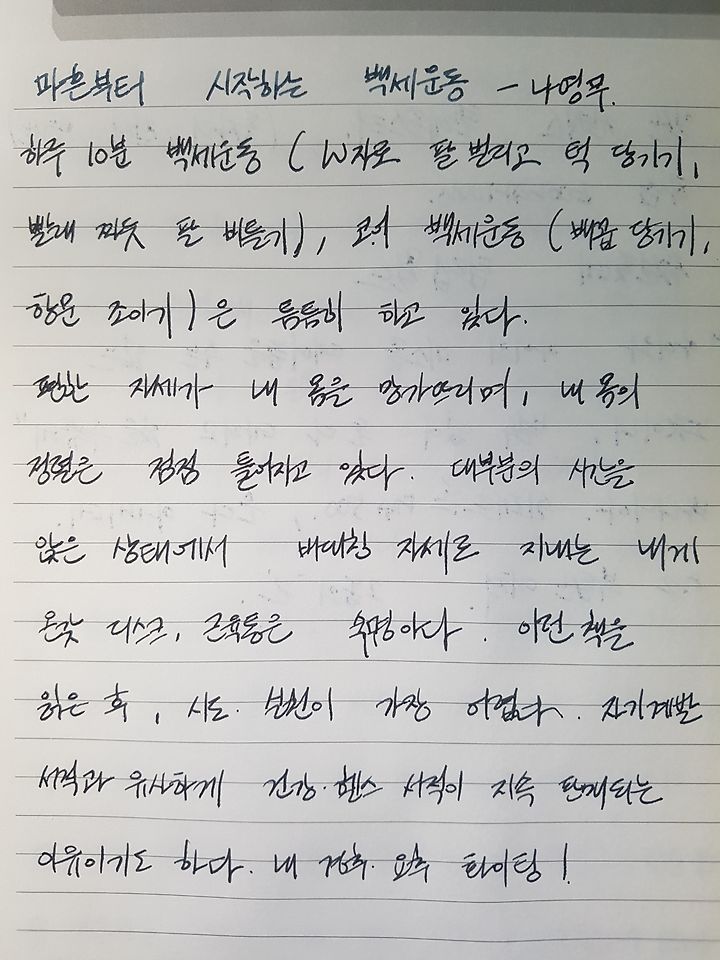 마흔부터 시작하는 백세운동 - 나영무.
하루 10분 백세운동 (W자로 팔 벌리고 턱 당기기,
빨래 짜듯 팔 비틀기), 코어 백세운동 (배꼽 당기기,
항문 조이기)은 틈틈히 하고 있다.
편한 자세가 내 몸을 망가뜨리며, 내 몸의
정렬은 점점 틀어지고 있다. 대부분의 시간을
앉은 상태에서 비대칭 자세로 지내는 내게
온갖 디스크, 근육통은 숙명이다. 이런 책을
읽은 후, 시도·실천이 가장 어렵다. 자기계발
서적과 유사하게 건강·헬스 서적이 지속 판매되는
이유이기도 하다. 내 경추·요추 화이팅!